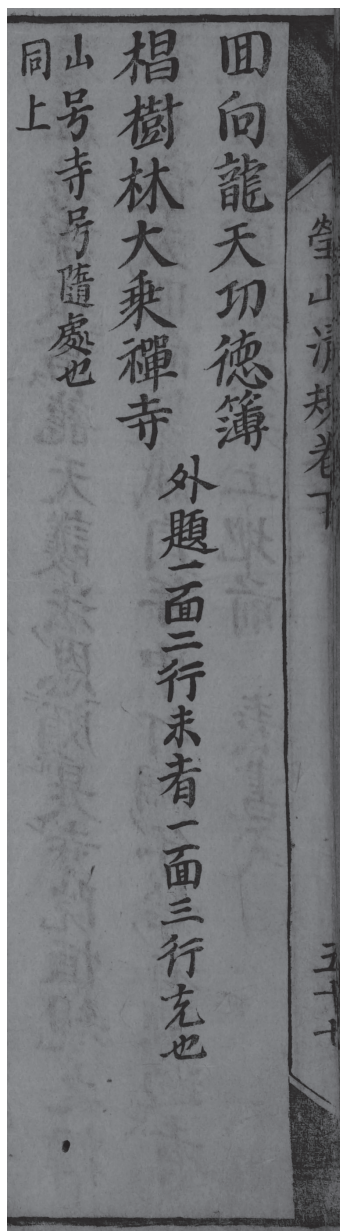 瑩山清規卷下
五十七
回向龍天功德簿
椙樹林大乗禪寺
外題一面二行末者一面三行充也
山号寺号隨處也
同上